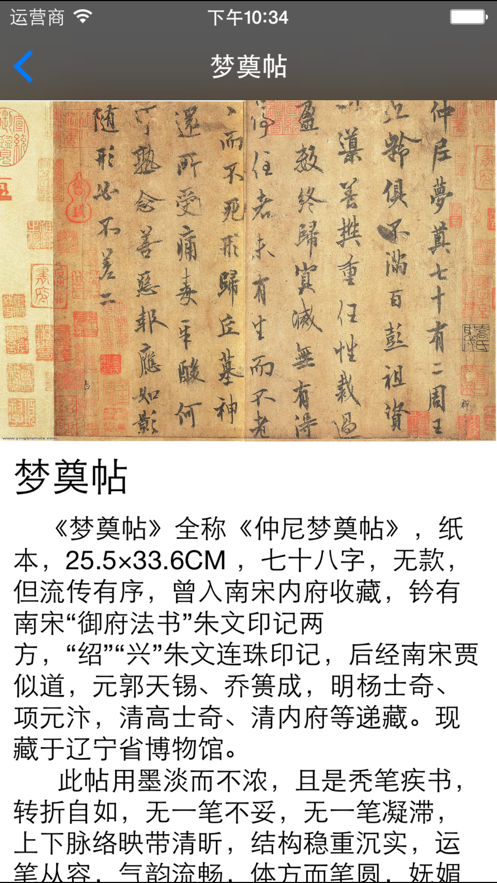 运营商 下午10:34
梦奠帖
仲尼夢奠七十有二周王
九齡俱不滿百彭祖資
以導養樽重任性裁過
盈數終歸冥滅無有得
停住者未有生而不老
老而不死形歸丘墓神
還所受痛毒辛酸何
可熟念善惡報應如影
随形必不差二
梦奠帖
《梦奠帖》全称《仲尼梦奠帖》，纸
本，25.5×33.6CM ，七十八字，无款，
但流传有序，曾入南宋内府收藏，钤有
南宋“御府法书”朱文印记两
方，“绍”“兴”朱文连珠印记，后经南宋贾
似道，元郭天锡、乔篑成，明杨士奇、
项元汴，清高士奇、清内府等递藏。现
藏于辽宁省博物馆。
此帖用墨淡而不浓，且是秃笔疾书，
转折自如，无一笔不妥，无一笔凝滞，
上下脉络映带清晰，结构稳重沉实，运
笔从容，气韵流畅，体方而笔圆，妩媚